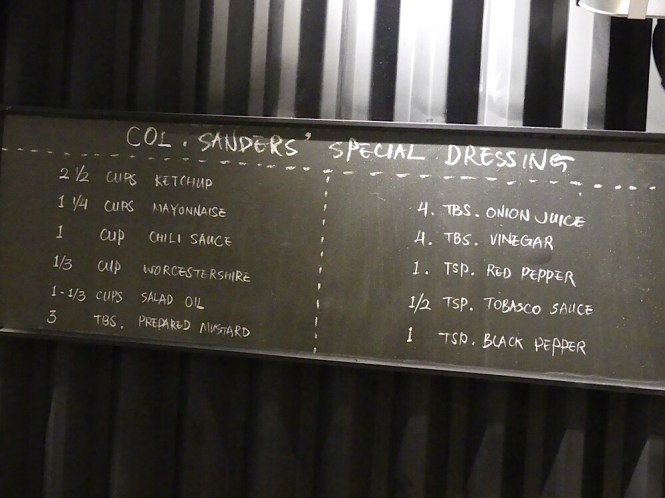 COL. SANDERS' SPECIAL DRESSING
2 1/2 CUPS KETCHUP
1 1/4 CUPS MAYONNAISE
1 CUP CHILI SAUCE
1/3 CUP WORCESTERSHIRE
1-1/3 CUPS SALAD OIL
3 TBS. PREPARED MUSTARD
4. TBS. ONION JUICE
4. TBS. VINEGAR
1. TSP. RED PEPPER
1/2 TSP. TOBASCO SAUCE
1 TSP. BLACK PEPPER